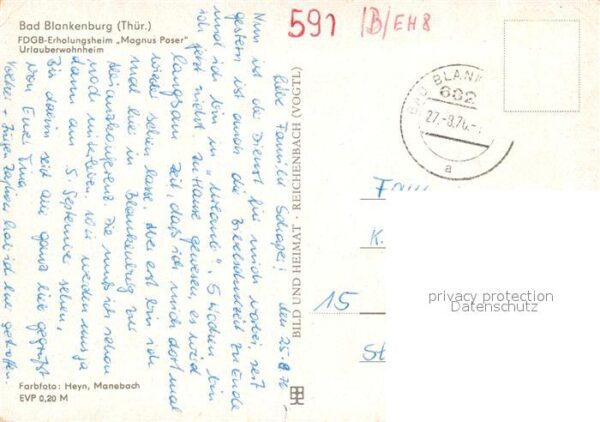 Bad Blankenburg (Thür.)
FDGB-Erholungsheim „Magnus Poser"
Urlauberwohnheim
591 /B/EH8
BAD BLANK
682
27.-8.76.-
a
BILD UND HEIMAT · REICHENBACH (VOGTL)
den 25.8.76
Liebe Familie
Nun ist die Dienst für mich vorbei, seit
gestern ist auch die zu Ende
und ich bin in 5 Wochen bin
ich jetzt nicht zu Hause gewesen, es wird
langsam Zeit, daß ich mich dort mal
wieder sehen lasse. Aber erst bin ich
mal hier in Blankenburg zur
Die muß ich schon
noch wir werden uns ja
dann am 5. September sehen.
Bis dahin seid alle ganz lieb gegrüßt
von Eurer
hab ich hier getroffen.
Fam
K.
15
St
privacy protection
Datenschutz
Farbfoto: Heyn, Manebach
EVP 0,20 M